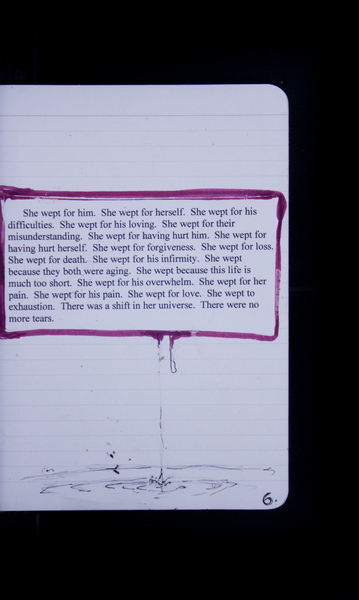 She wept for him. She wept for herself. She wept for his
difficulties. She wept for his loving. She wept for their
misunderstanding. She wept for having hurt him. She wept for
having hurt herself. She wept for forgiveness. She wept for loss.
She wept for death. She wept for his infirmity. She wept
because they both were aging. She wept because this life is
much too short. She wept for his overwhelm. She wept for her
pain. She wept for his pain. She wept for love. She wept to
exhaustion. There was a shift in her universe. There were no
more tears.
6.